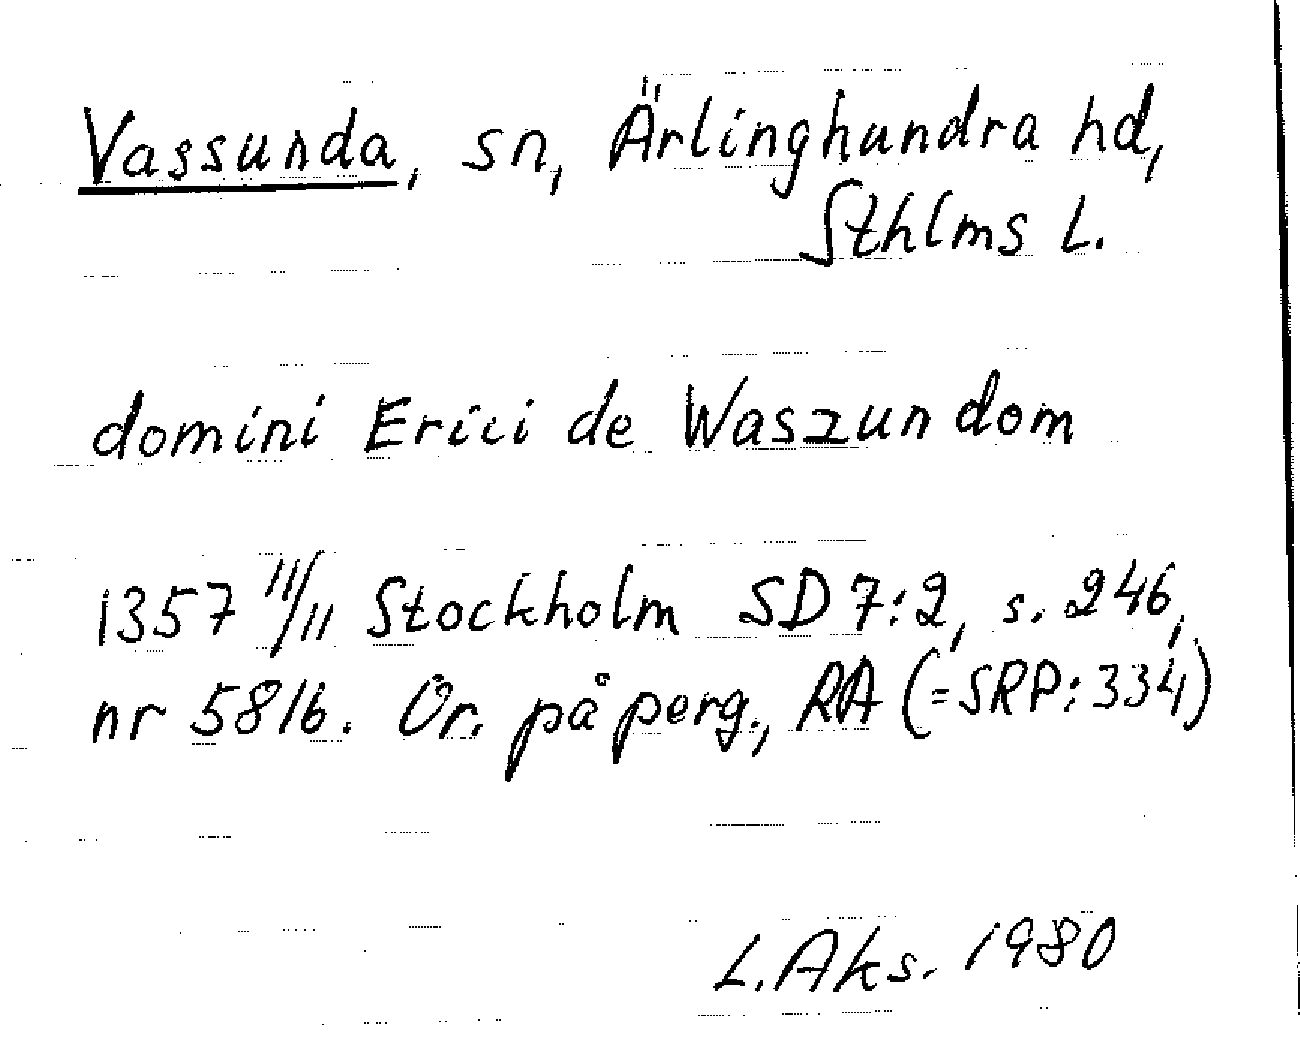 Vassunda, sn, Ärlinghundra hd,
Sthlms L.
domini Erici de Waszundom
1357 11/11 Stockholm SD 7:2, s. 246,
nr 5816. Or. på perg., RA (=SRP:334)
L. Aks. 1980